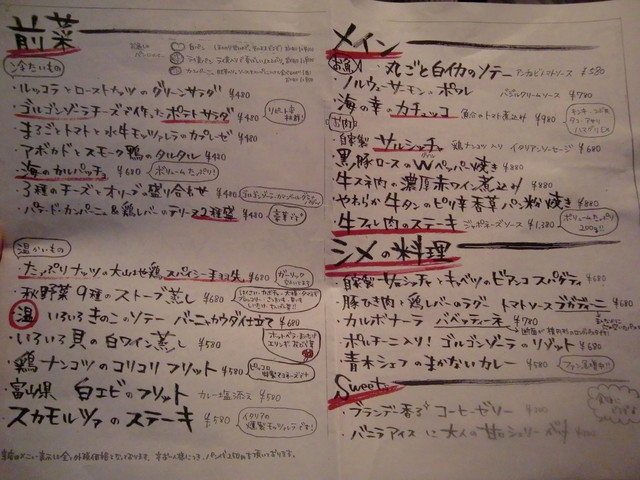 前菜
冷たいもの
・ルッコラとローストナッツのグリーンサラダ ¥480
・ゴルゴンゾーラチーズで作ったポテトサラダ ¥480
・まるごとトマトと水牛モッツァレラのカプレーゼ ¥480
・アボカドとスモーク鴨のタルタル ¥480
・海のカルパッチョ ¥680 ボリュームたっぷり!
・3種のチーズとオリーブの盛り合わせ ¥480
・パテ・ド・カンパーニュ&鶏レバーのテリーヌ2種盛 ¥480
温かいもの
・たっぷりナッツの大山地鶏スパイシー手羽先 ¥680
・秋野菜9種のストーブ蒸し ¥680
温 いろいろきのこのソテー バーニャカウダ仕立て ¥680
・いろいろ貝の白ワイン蒸し ¥580
・鶏ナンコツのコリコリフリット ¥580
・富山県 白エビのフリット カレー塩添え ¥580
・スカモルツァのステーキ ¥580 イタリアの燻製モッツァレラです!
メイン
お魚
・丸ごと白イカのソテー アンチョビトマトソース ¥580
・ノルウェーサーモンのポワレ バジルクリームソース ¥780
・海の幸のカチュッコ 魚介のトマト煮込み ¥980
お肉
・自家製サルシッチャ 鶏ナンコツ入り イタリアンソーセージ ¥680
・黒豚ロースのWペッパー焼き ¥880
・牛スネ肉の濃厚赤ワイン煮込み ¥880
・やわらか牛タンのピリ辛香草パン粉焼き ¥880
・牛フィレ肉のステーキ ジャポネーズソース ¥1,380 ボリュームたっぷり200g!!
シメの料理
・自家製サルシッチャとキャベツのビアンコ スパゲティ ¥680
・豚ひき肉と鶏レバーのラグー トマトソース ブカティーニ ¥680
・カルボナーラ パパルディーネ ¥780
・ポルチーニ入り!ゴルゴンゾーラのリゾット ¥680
・青木シェフのまかないカレー ¥580
Sweets
・ブランデー香る コーヒーゼリー
・バニラアイスに大人の甘口シェリーがけ